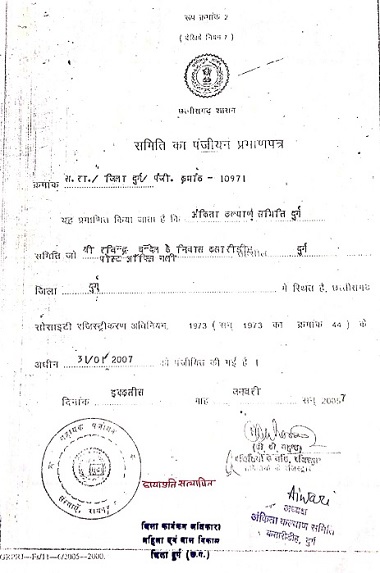 रूप क्रमांक २
( देखिये नियम ? )
छत्तीसगढ़ शासन
समिति का पंजीयन प्रमाणपत्र
क्रमांक स.रा./ जिला दुर्ग/ पंजी. क्रमांक - 10971
यह प्रमाणित किया जाता है कि अंकिता कल्याण समिति दुर्ग
समिति जो श्री रविन्द्र निवास दुर्ग
पोस्ट ऑफिस गली
जिला दुर्ग में स्थित है, छत्तीसगढ़
सोसाइटी रजिस्ट्रीकरण अधिनियम, 1973 ( सन् 1973 का क्रमांक 44 ) के
अधीन 31/01/2007 को पंजीयित की गई है ।
दिनांक इकतीस माह जनवरी सन् 2007
सहायक पंजीयक
संस्थाएं, रायपुर
छायाप्रति सत्यापित
जिला कार्यक्रम अधिकारी
महिला एवं बाल विकास
जिला दुर्ग (छ.ग.)
Aiwari
अध्यक्ष
अंकिता कल्याण समिति
कसारीडीह, दुर्ग